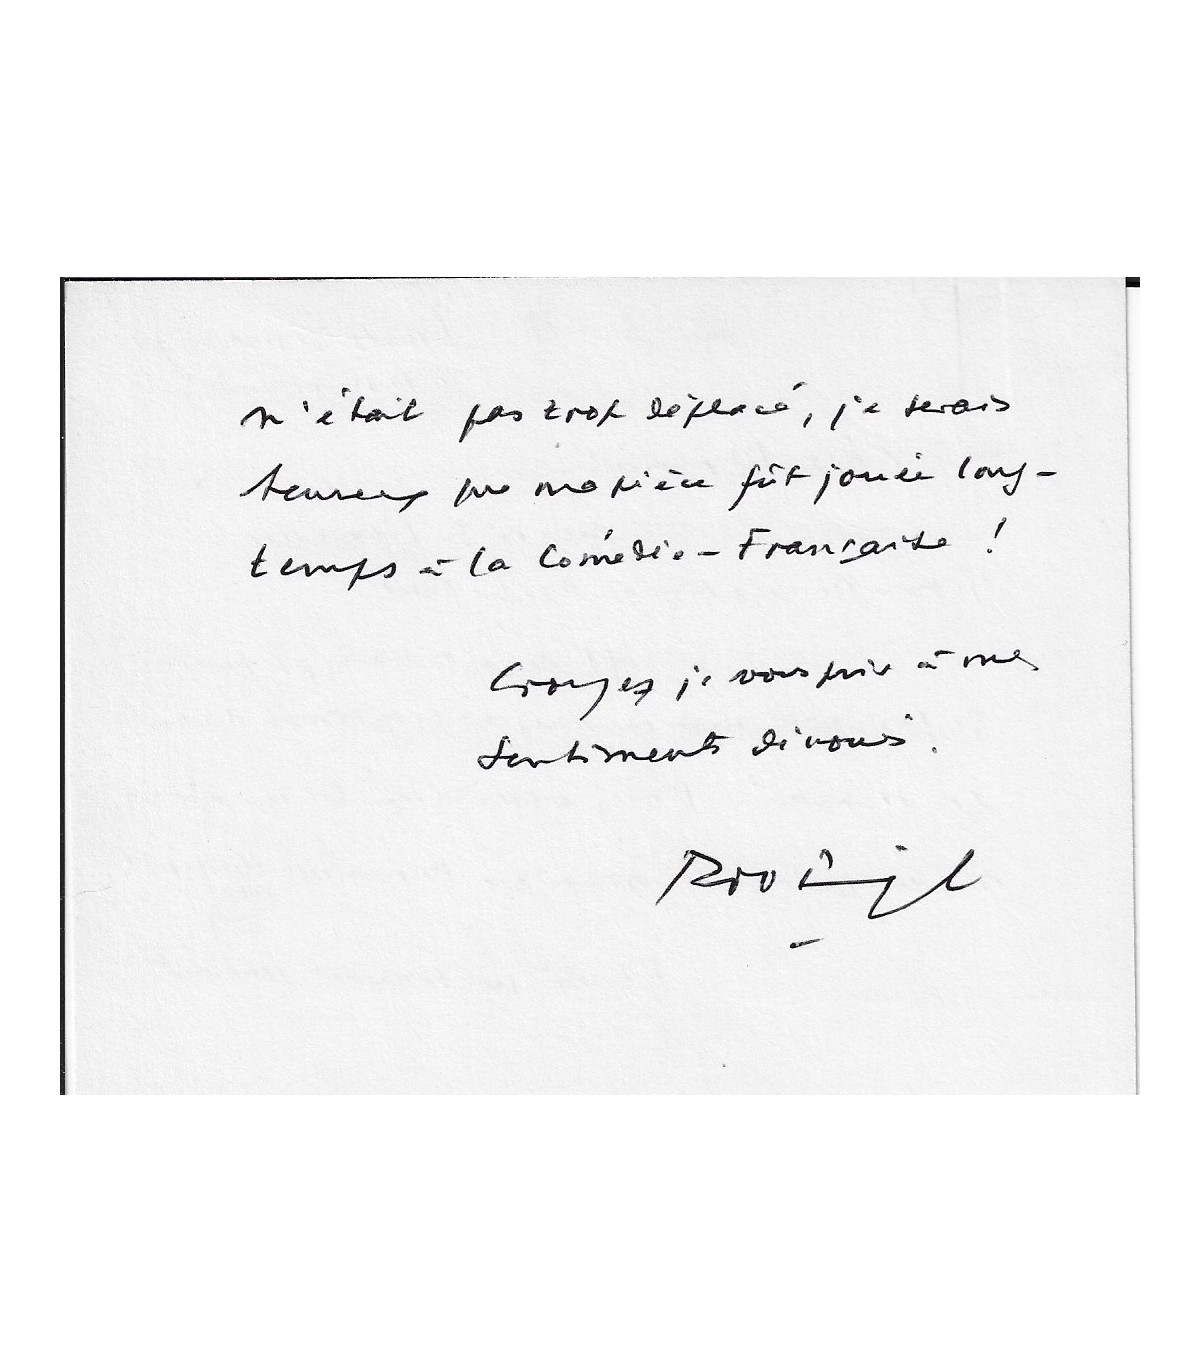 n'était pas trop déplacé, je serais
heureux que ma pièce fût jouée long-
temps à la Comédie-Française !
Croyez je vous prie à mes
sentiments dévoués.